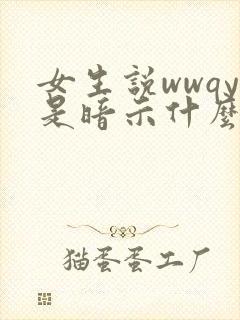 女生說wwqy
是暗示什麼
猫蛋蛋工厂